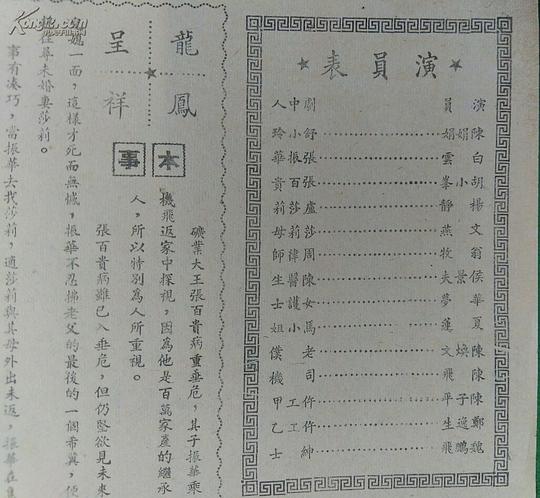 演員表
演員 劇中人
陳娟娟……舒小玲
白雲……張振華
胡小峯……張百貴
楊靜……盧莎莉
文燕……莎莉母
翁牧……周律師
侯景夫……陳醫生
華夢……女護士
夏蓬……馬小姐
陳煥文……老僕
陳飛……司機
陳子平……仵工甲
鄭逸生……仵工乙
魏鵬飛……紳士
龍鳳
呈祥
本事
礦業大王張百貴病重垂危，其子振華乘
機飛返家中探視，因為他是百萬家產的繼承
人，所以特別為人所重視。
張百貴病雖已入垂危，但仍堅欲見未來
媳一面，這樣才死而無憾，振華不忍拂老父的最後的一個希冀，便
往尋未婚妻莎莉。
事有湊巧，當振華去找莎莉，適莎莉與其母外出未返，振華在